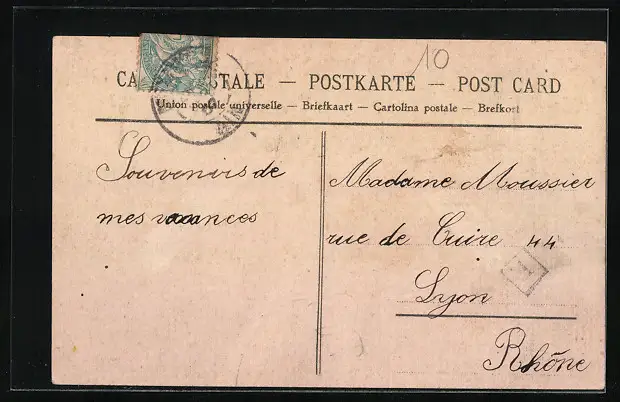 10
CA TALE — POSTKARTE — POST CARD
Union postale universelle — Briefkaart — Cartolina postale — Brefkort
Souvenirs de
mes vacances
Madame Moussier
rue de Cuire 44
Lyon
Rhône